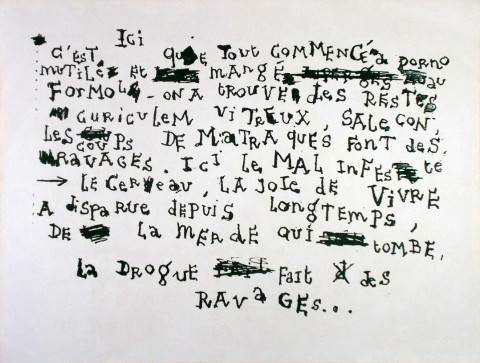 Ici
C'EST QUE TOUT COMMENCE à PORNO
MUTILÉ et MANGÉ au
FORMOL - ON A TROUVER LES RESTES
CURICULEM VITREUX, SALE CON,
LES COUPS DE MATRAQUES FONT DES
RAVAGES. ICI LE MAL INFESTE té
→ LE CERVEAU, LA JOIE DE VIVRE
A DISPARUE DEPUIS LONGTEMPS,
DE LA MERDE QUI TOMBE,
LA DROGUE Fait des
RAVAGES...